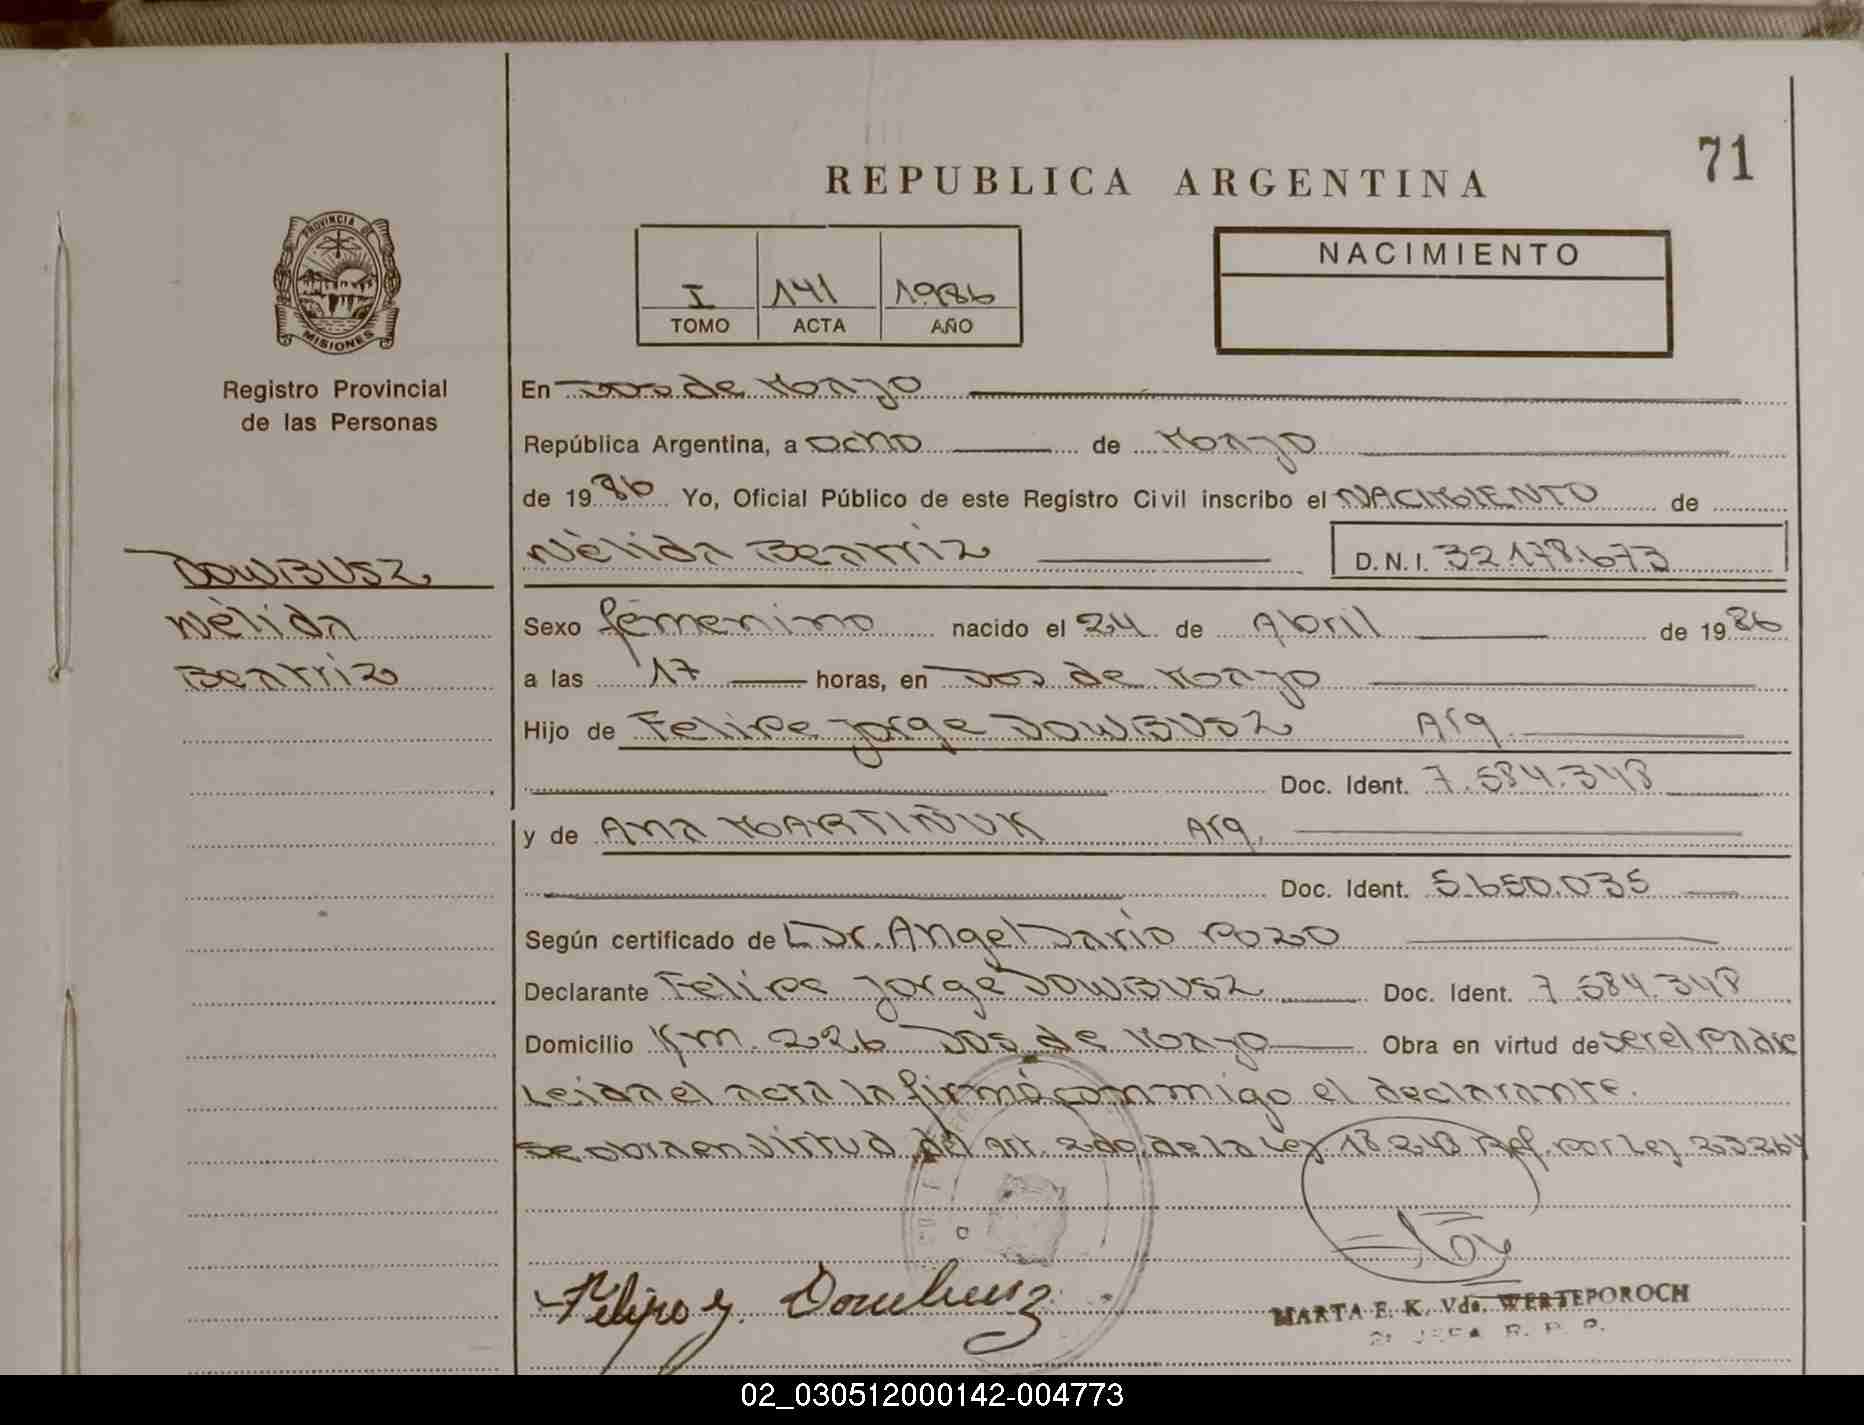 71
REPUBLICA ARGENTINA
PROVINCIA DE
MISIONES
Registro Provincial
de las Personas
I 141 1986
TOMO ACTA AÑO
NACIMIENTO
En Dos de Mayo
República Argentina, a ocho de Mayo
de 1986 Yo, Oficial Público de este Registro Civil inscribo el NACIMIENTO de
Nèlida Beatriz D.N.I. 32.178.673
DOWBUSZ
Nèlida
Beatriz
Sexo femenino nacido el 24 de Abril de 1986
a las 17 horas, en Dos de Mayo
Hijo de Felipe Jorge DOWBUSZ Arg.
Doc. Ident. 7.584.348
y de Ana MARTIÑUK Arg.
Doc. Ident. 5.650.035
Según certificado de Dr. Angel Dario Pozo
Declarante Felipe Jorge DOWBUSZ Doc. Ident. 7.584.348
Domicilio Km. 226 Dos de Mayo Obra en virtud de ser el Padre
Leida el acta la firmá conmigo el declarante.
Se obra en virtud del Art. 2do. de la Ley 18.248 Ref. por Ley 23264
Felipe J. Dowbusz
MARTA E. K. Vda. WERTEPOROCH
R. P. P.
02_030512000142-004773